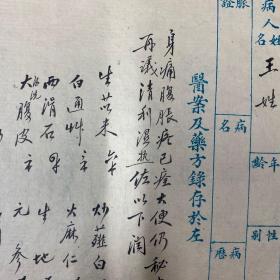 證脈
病人姓名 王姓
齡年
別性
病名
病歷
醫案及藥方錄存於左
身痛腹脹疹已痊大便仍秘
再議清利濕熱佐以下潤
生苡米
炒薤白
白通艸
火麻仁
西滑石
生地
大腹皮
元參